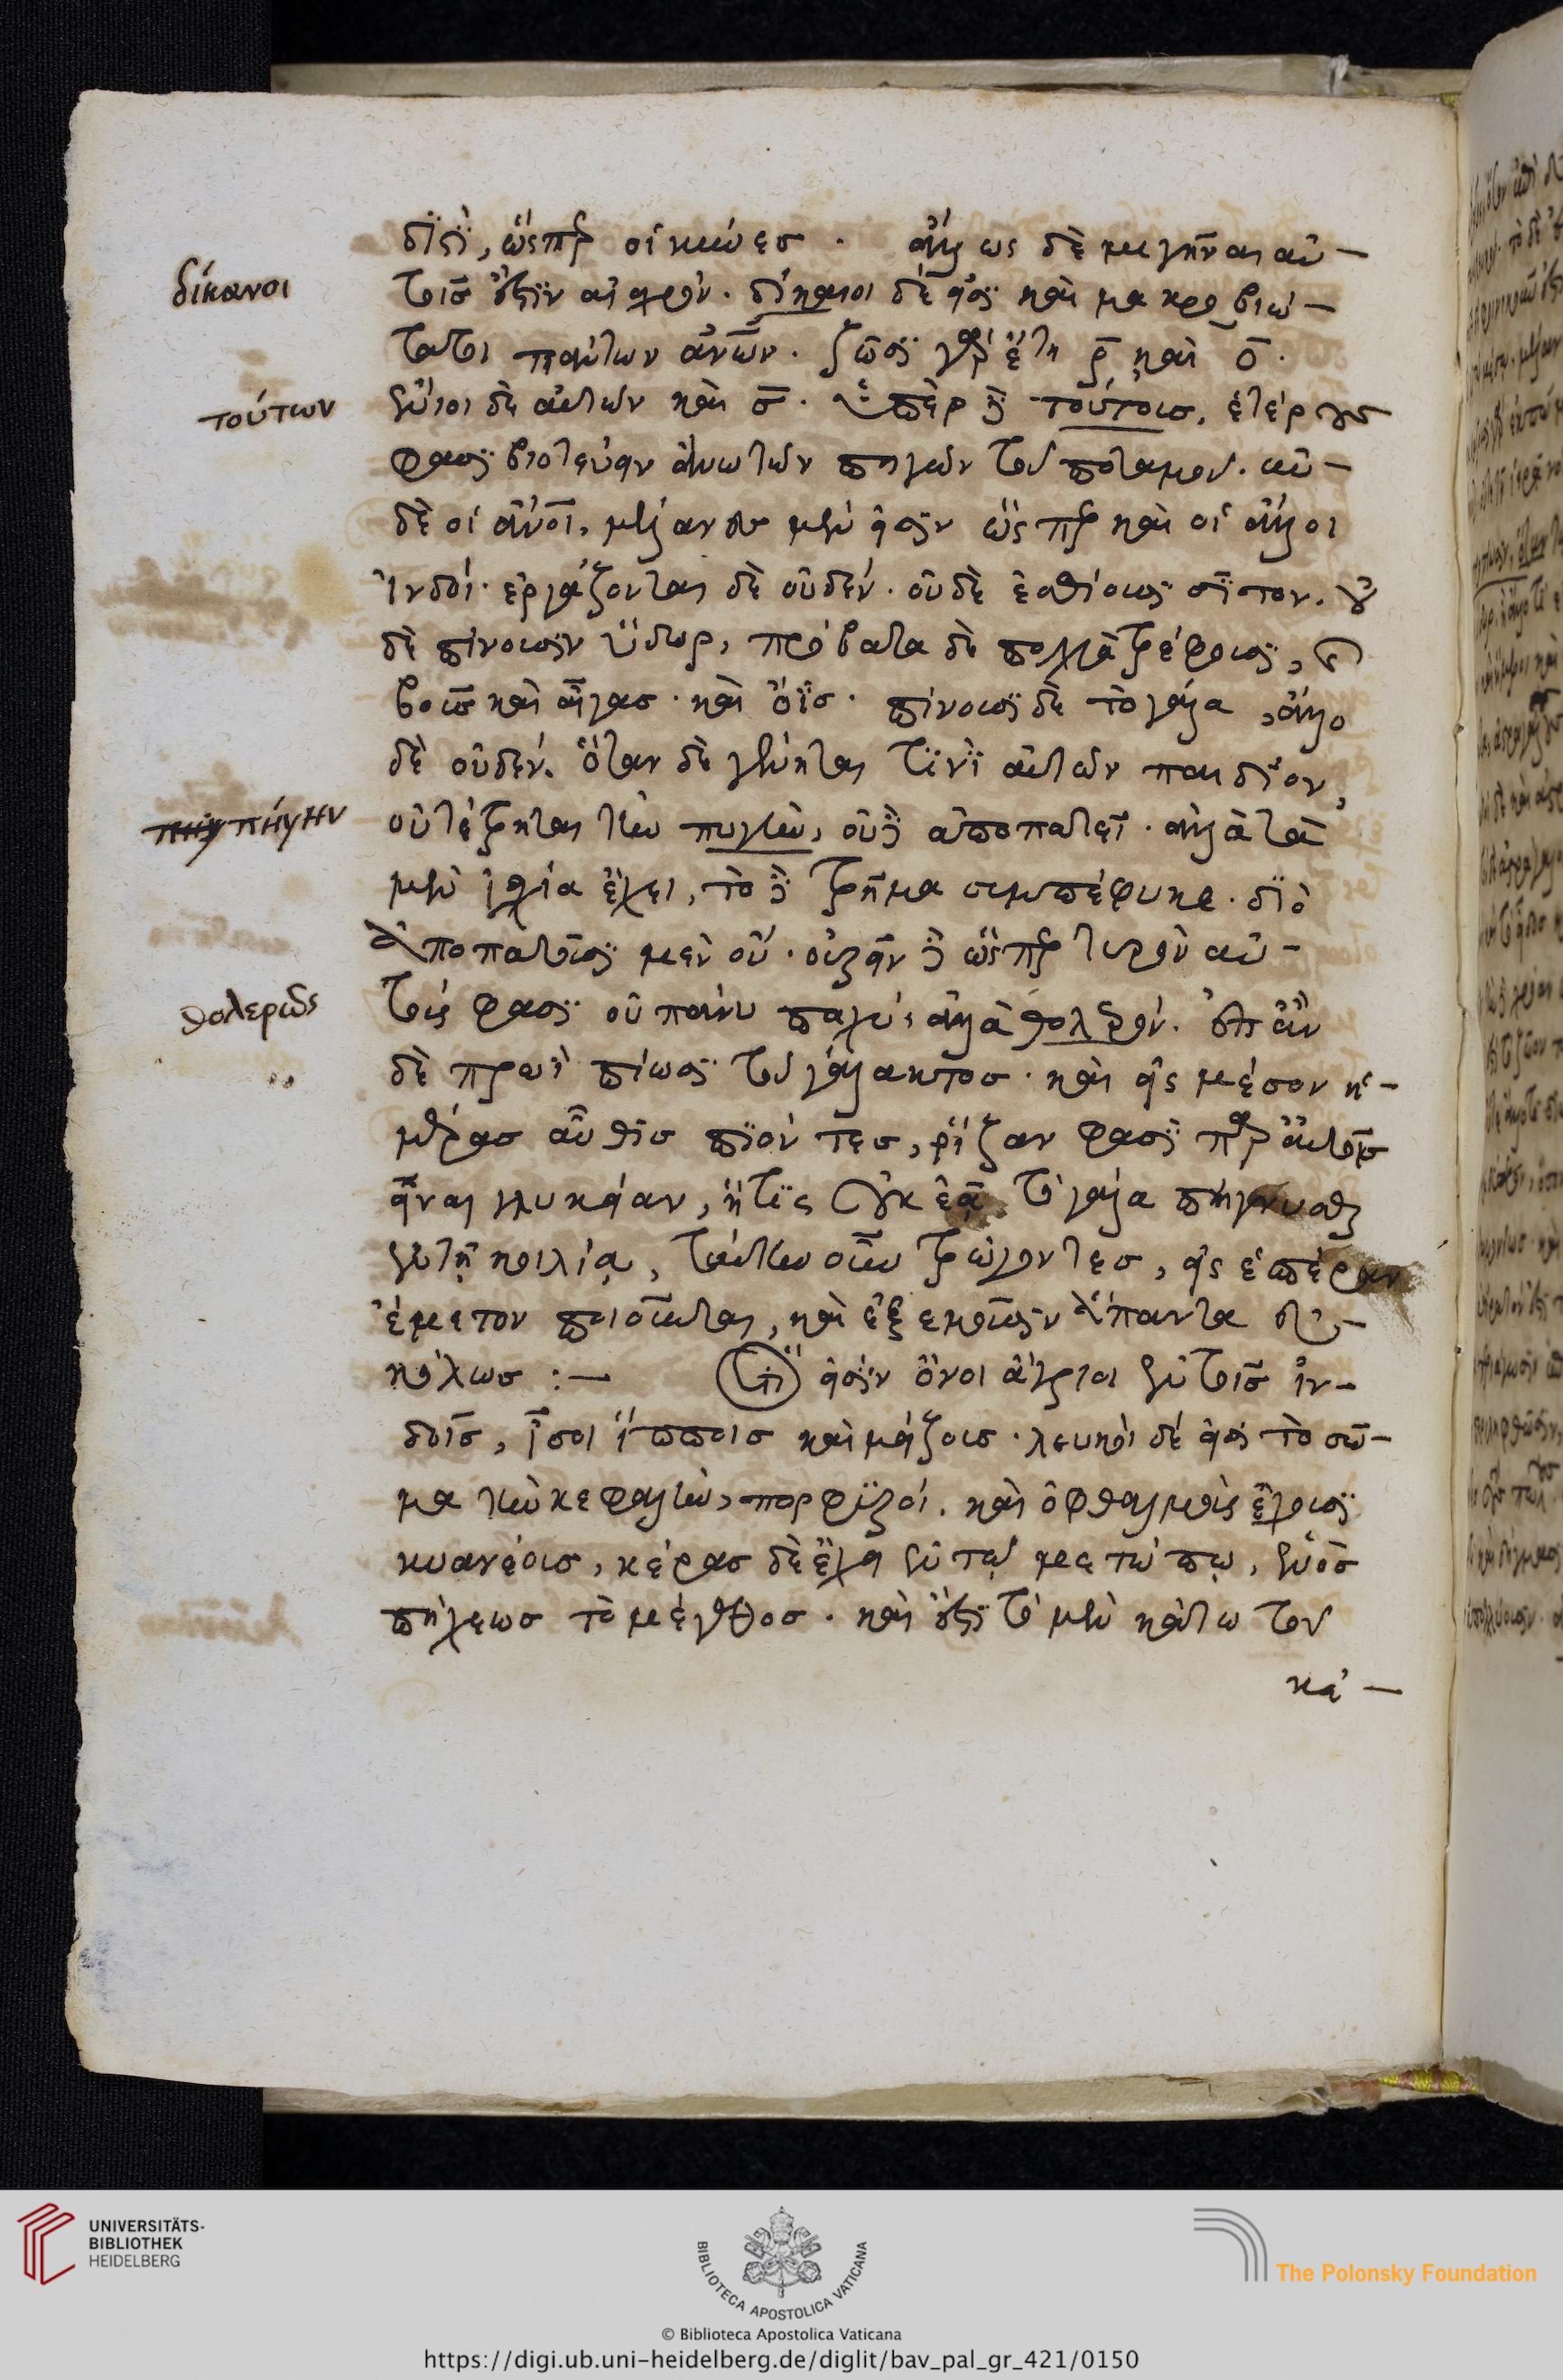 δισὶ, ὥσπερ οἱ κύνες · ἄλλως δὲ μιγῆναι αὐ-
δίκαιοι
τοῖς ἐστὶν αἰσχρόν. δίκαιοι δέ εἰσι καὶ μακροβιώ-
τατοι πάντων ἀνων. ζῶσι γὰρ ἔτη ρ̄ καὶ ο̄.
τούτων
ἔνιοι δὲ αὐτῶν καὶ σ̄. ὑπὲρ δὲ τούτοις, ἑτέρους
φασὶ βιοτεύειν ἄνω τῶν πηγῶν τοῦ ποταμοῦ. αὐ-
δὲ οἱ ἄνοι, μέλανες μὲν εἰσὶν ὥσπερ καὶ οἱ ἄλλοι
ἰνδοί· ἐργάζονται δὲ οὐδέν. οὐδὲ ἐσθίουσι σῖτον. οὐ
δὲ πίνουσιν ὕδωρ, πρόβατα δὲ πολλὰ τρέφουσι, καὶ
βοῦς καὶ αἶγας · καὶ ὄϊς · πίνουσι δὲ τὸ γάλα, ἄλλο
δὲ οὐδέν. ὅταν δὲ γένηται τινὶ αὐτῶν παιδίον,
πυγὴν
οὐ τέτρηται τὴν πυγὴν, οὐδὲ ἀποπατεῖ · ἀλλὰ τὰ
μὲν ἰσχία ἔχει, τὸ δὲ τρῆμα συμπέφυκε · διὸ
ἀποπατοῦσι μὲν οὔ · οὐρεῖν δὲ ὥσπερ τυρὸν αὐ-
θολερῶς
τούς φασι οὐ πάνυ παχύ, ἀλλὰ θολερόν. ἐπὰν
δὲ πρωῒ πίωσι τοῦ γάλακτος · καὶ εἰς μέσον ἡ-
μέρας αὖθις πιόντες, ῥίζαν φασὶ παρ' αὐτοῖς
εἶναι γλυκεῖαν, ἥτις οὐκ ἐᾷ τὸ γάλα πήγνυσθαι
ἐν τῇ κοιλίᾳ, ταύτην οὖν τρώγοντες, εἰς ἑσπέραν
ἔμετον ποιοῦνται, καὶ ἐξεμοῦσιν ἅπαντα εὐ-
κόλως :— ὅτι εἰσὶν ὄνοι ἄγριοι ἐν τοῖς ἰν-
δοῖς, ἴσοι ἵπποις καὶ μείζοις · λευκοὶ δέ εἰσι τὸ σῶ-
μα τὴν κεφαλὴν, πορφυροῖ. καὶ ὀφθαλμοὺς ἔχουσι
κυανέοις, κέρας δὲ ἔχει ἐν τῷ μετώπῳ, ἑνὸς
πήχεως τὸ μέγεθος · καὶ ἔστι τὸ μὲν κάτω τοῦ
κέ —
UNIVERSITÄTS-
BIBLIOTHEK
HEIDELBERG
BIBLIOTECA APOSTOLICA VATICANA
The Polonsky Foundation
© Biblioteca Apostolica Vaticana
https://digi.ub.uni-heidelberg.de/diglit/bav_pal_gr_421/0150